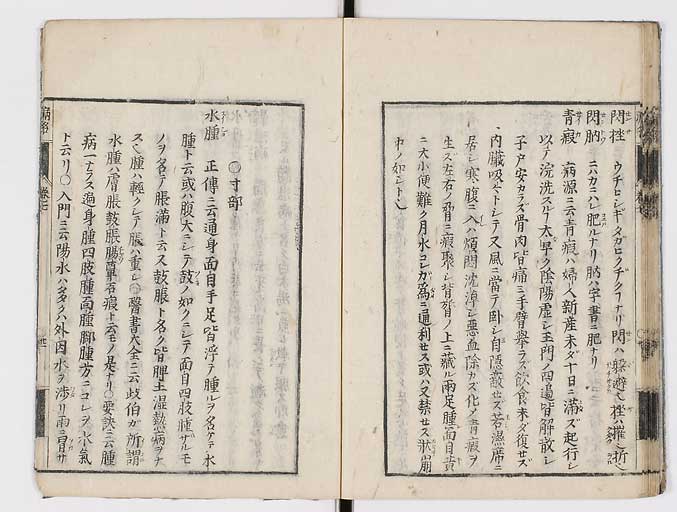 閃挫 ウチヒシギタガヒクヂクフナリ閃ハ躱避也挫ハ摧也折也
閃朒 ニハカニハレ肥ルナリ朒ハ字書ニ肥ナリ
青瘕 病源ニ云青瘕ハ婦人新産未ダ十日ニ満ズ起行シ
以テ浣洗スルヿ太早ク陰陽虚シ玉門ノ四邉皆解散シ
子戸安カラズ骨肉皆痛ミ手臂擧ラズ飲食未ダ復セズ
内臓吸々トシテ又風ニ當テ卧シ自隠蔽セズ若濕席ニ
居シ寒腹ニ入ハ煩悶沈淖シ悪血除カズ化メ青瘕ヲ
生ズ左右ノ脅ニ瘕聚シ背膂ノ上ニ藏ル兩足腫面目黄
ニ大小便難ク月水コレガ為ニ通利セズ或ハ又禁セズ状崩
中ノ如シト也
〇寸部
水腫 正傳ニ云通身面目手足皆浮テ腫ルヲ名ケテ水
腫ト云或ハ腹大ニシテ鼓ノ如クニシテ面目四肢腫ザルモ
ノヲ名テ脹滿ト云又鼓脹ト名ク皆脾土濕熱病ヲナ
ス也腫ハ輕クシテ脹ハ重シ〇醫書大全ニ云岐伯ガ所謂
水腫ハ膚脹鼓脹腸覃石瘕ト云モノ是ナリ〇要訣ニ云腫
病一ナラズ遍身腫四肢腫面腫脚腫方ニコレヲ水氣
ト云リ〇入門ニ云陽水ハ多クハ外因水ヲ渉リ雨ニ冒サ